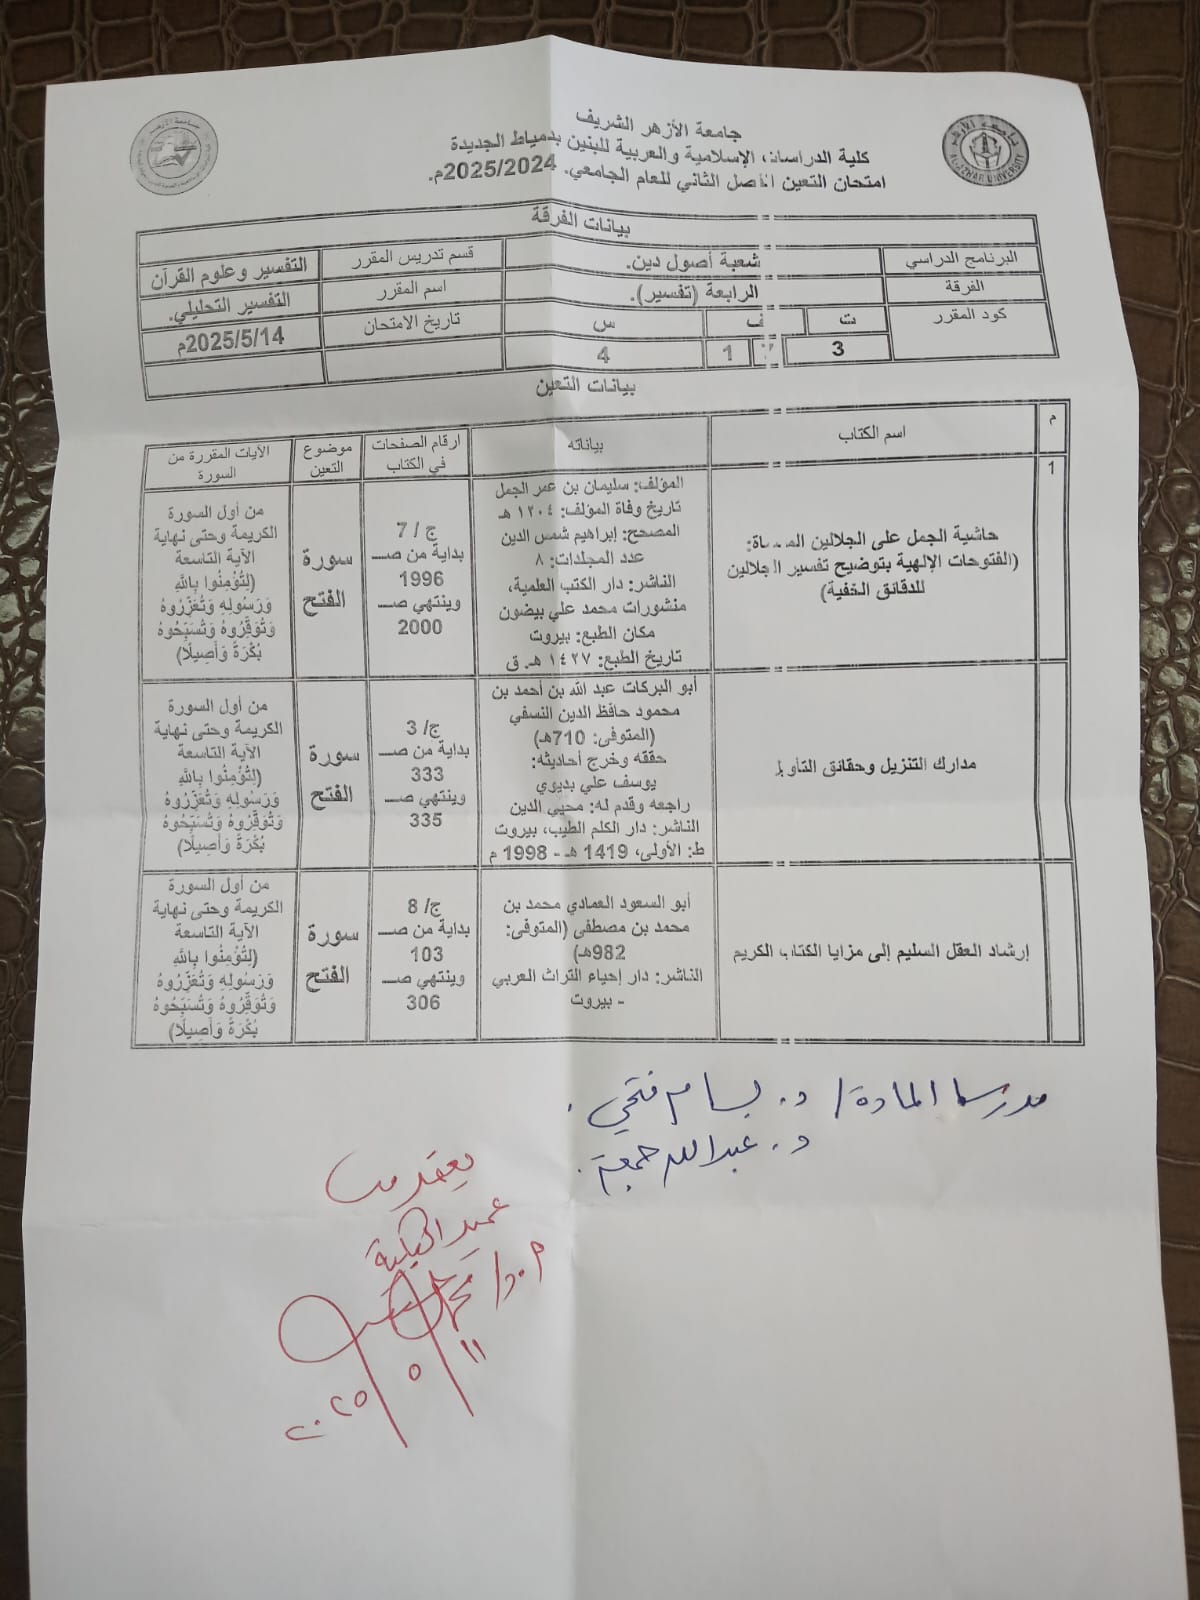 جامعة الأزهر الشريف
كلية الدراسات الإسلامية والعربية للبنين بدمياط الجديدة
امتحان التعين الفصل الثاني للعام الجامعي. 2025/2024م.
AL-AZHAR UNIVERSITY
بيانات الفرقة
البرنامج الدراسي شعبة أصول دين. قسم تدريس المقرر التفسير وعلوم القرآن
الفرقة الرابعة (تفسير). اسم المقرر التفسير التحليلي.
كود المقرر ت ف س تاريخ الامتحان 2025/5/14م
3 1 4
بيانات التعين
م اسم الكتاب بياناته ارقام الصفحات في الكتاب موضوع التعين الآيات المقررة من السورة
1
حاشية الجمل على الجلالين المسماة:
(الفتوحات الإلهية بتوضيح تفسير الجلالين
للدقائق الخفية)
المؤلف: سليمان بن عمر الجمل
تاريخ وفاة المؤلف: ١٢٠٤ هـ
المصحح: إبراهيم شمس الدين
عدد المجلدات: ٨
الناشر: دار الكتب العلمية،
منشورات محمد علي بيضون
مكان الطبع: بيروت
تاريخ الطبع: ١٤٢٧ هـ. ق
ج / 7
بداية من صـــ
1996
وينتهي صـــ
2000
سورة
الفتح
من أول السورة
الكريمة وحتى نهاية
الآية التاسعة
(لِتُؤْمِنُوا بِاللَّهِ
وَرَسُولِهِ وَتُعَزِّرُوهُ
وَتُوَقِّرُوهُ وَتُسَبِّحُوهُ
بُكْرَةً وَأَصِيلًا)
مدارك التنزيل وحقائق التأويل
أبو البركات عبد الله بن أحمد بن
محمود حافظ الدين النسفي
(المتوفى: 710هـ)
حققه وخرج أحاديثه:
يوسف علي بديوي
راجعه وقدم له: محيي الدين
الناشر: دار الكلم الطيب، بيروت
ط: الأولى، 1419 هـ - 1998 م
ج/ 3
بداية من صـــ
333
وينتهي صـــ
335
سورة
الفتح
من أول السورة
الكريمة وحتى نهاية
الآية التاسعة
(لِتُؤْمِنُوا بِاللَّهِ
وَرَسُولِهِ وَتُعَزِّرُوهُ
وَتُوَقِّرُوهُ وَتُسَبِّحُوهُ
بُكْرَةً وَأَصِيلًا)
إرشاد العقل السليم إلى مزايا الكتاب الكريم
أبو السعود العمادي محمد بن
محمد بن مصطفى (المتوفى:
982هـ)
الناشر: دار إحياء التراث العربي
- بيروت
ج/ 8
بداية من صـــ
103
وينتهي صـــ
306
سورة
الفتح
من أول السورة
الكريمة وحتى نهاية
الآية التاسعة
(لِتُؤْمِنُوا بِاللَّهِ
وَرَسُولِهِ وَتُعَزِّرُوهُ
وَتُوَقِّرُوهُ وَتُسَبِّحُوهُ
بُكْرَةً وَأَصِيلًا)
مدرسا المادة/ د. بسام فتحي.
د. عبدالله جمعة.
يعتمد
عميد الكلية
أ.د/ محمد
١١ ٥ ٢٠٢٥